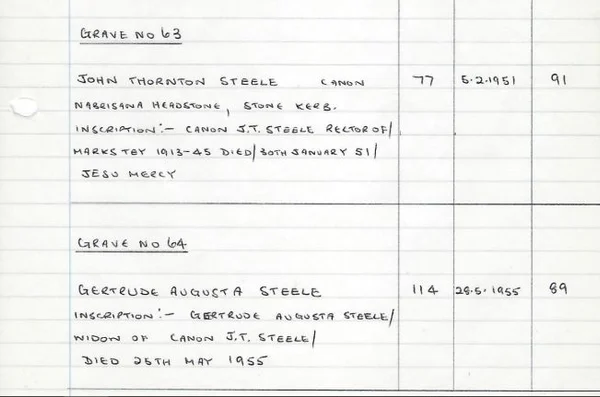 GRAVE NO 63
JOHN THORNTON STEELE CANON 77 5.2.1951 91
NABRISANA HEADSTONE, STONE KERB.
INSCRIPTION:- CANON J.T. STEELE RECTOR OF/
MARKS TEY 1913-45 DIED/30TH JANUARY 51/
JESU MERCY
GRAVE NO 64
GERTRUDE AUGUSTA STEELE 114 28.5.1955 89
INSCRIPTION:- GERTRUDE AUGUSTA STEELE/
WIDOW OF CANON J.T. STEELE/
DIED 25TH MAY 1955